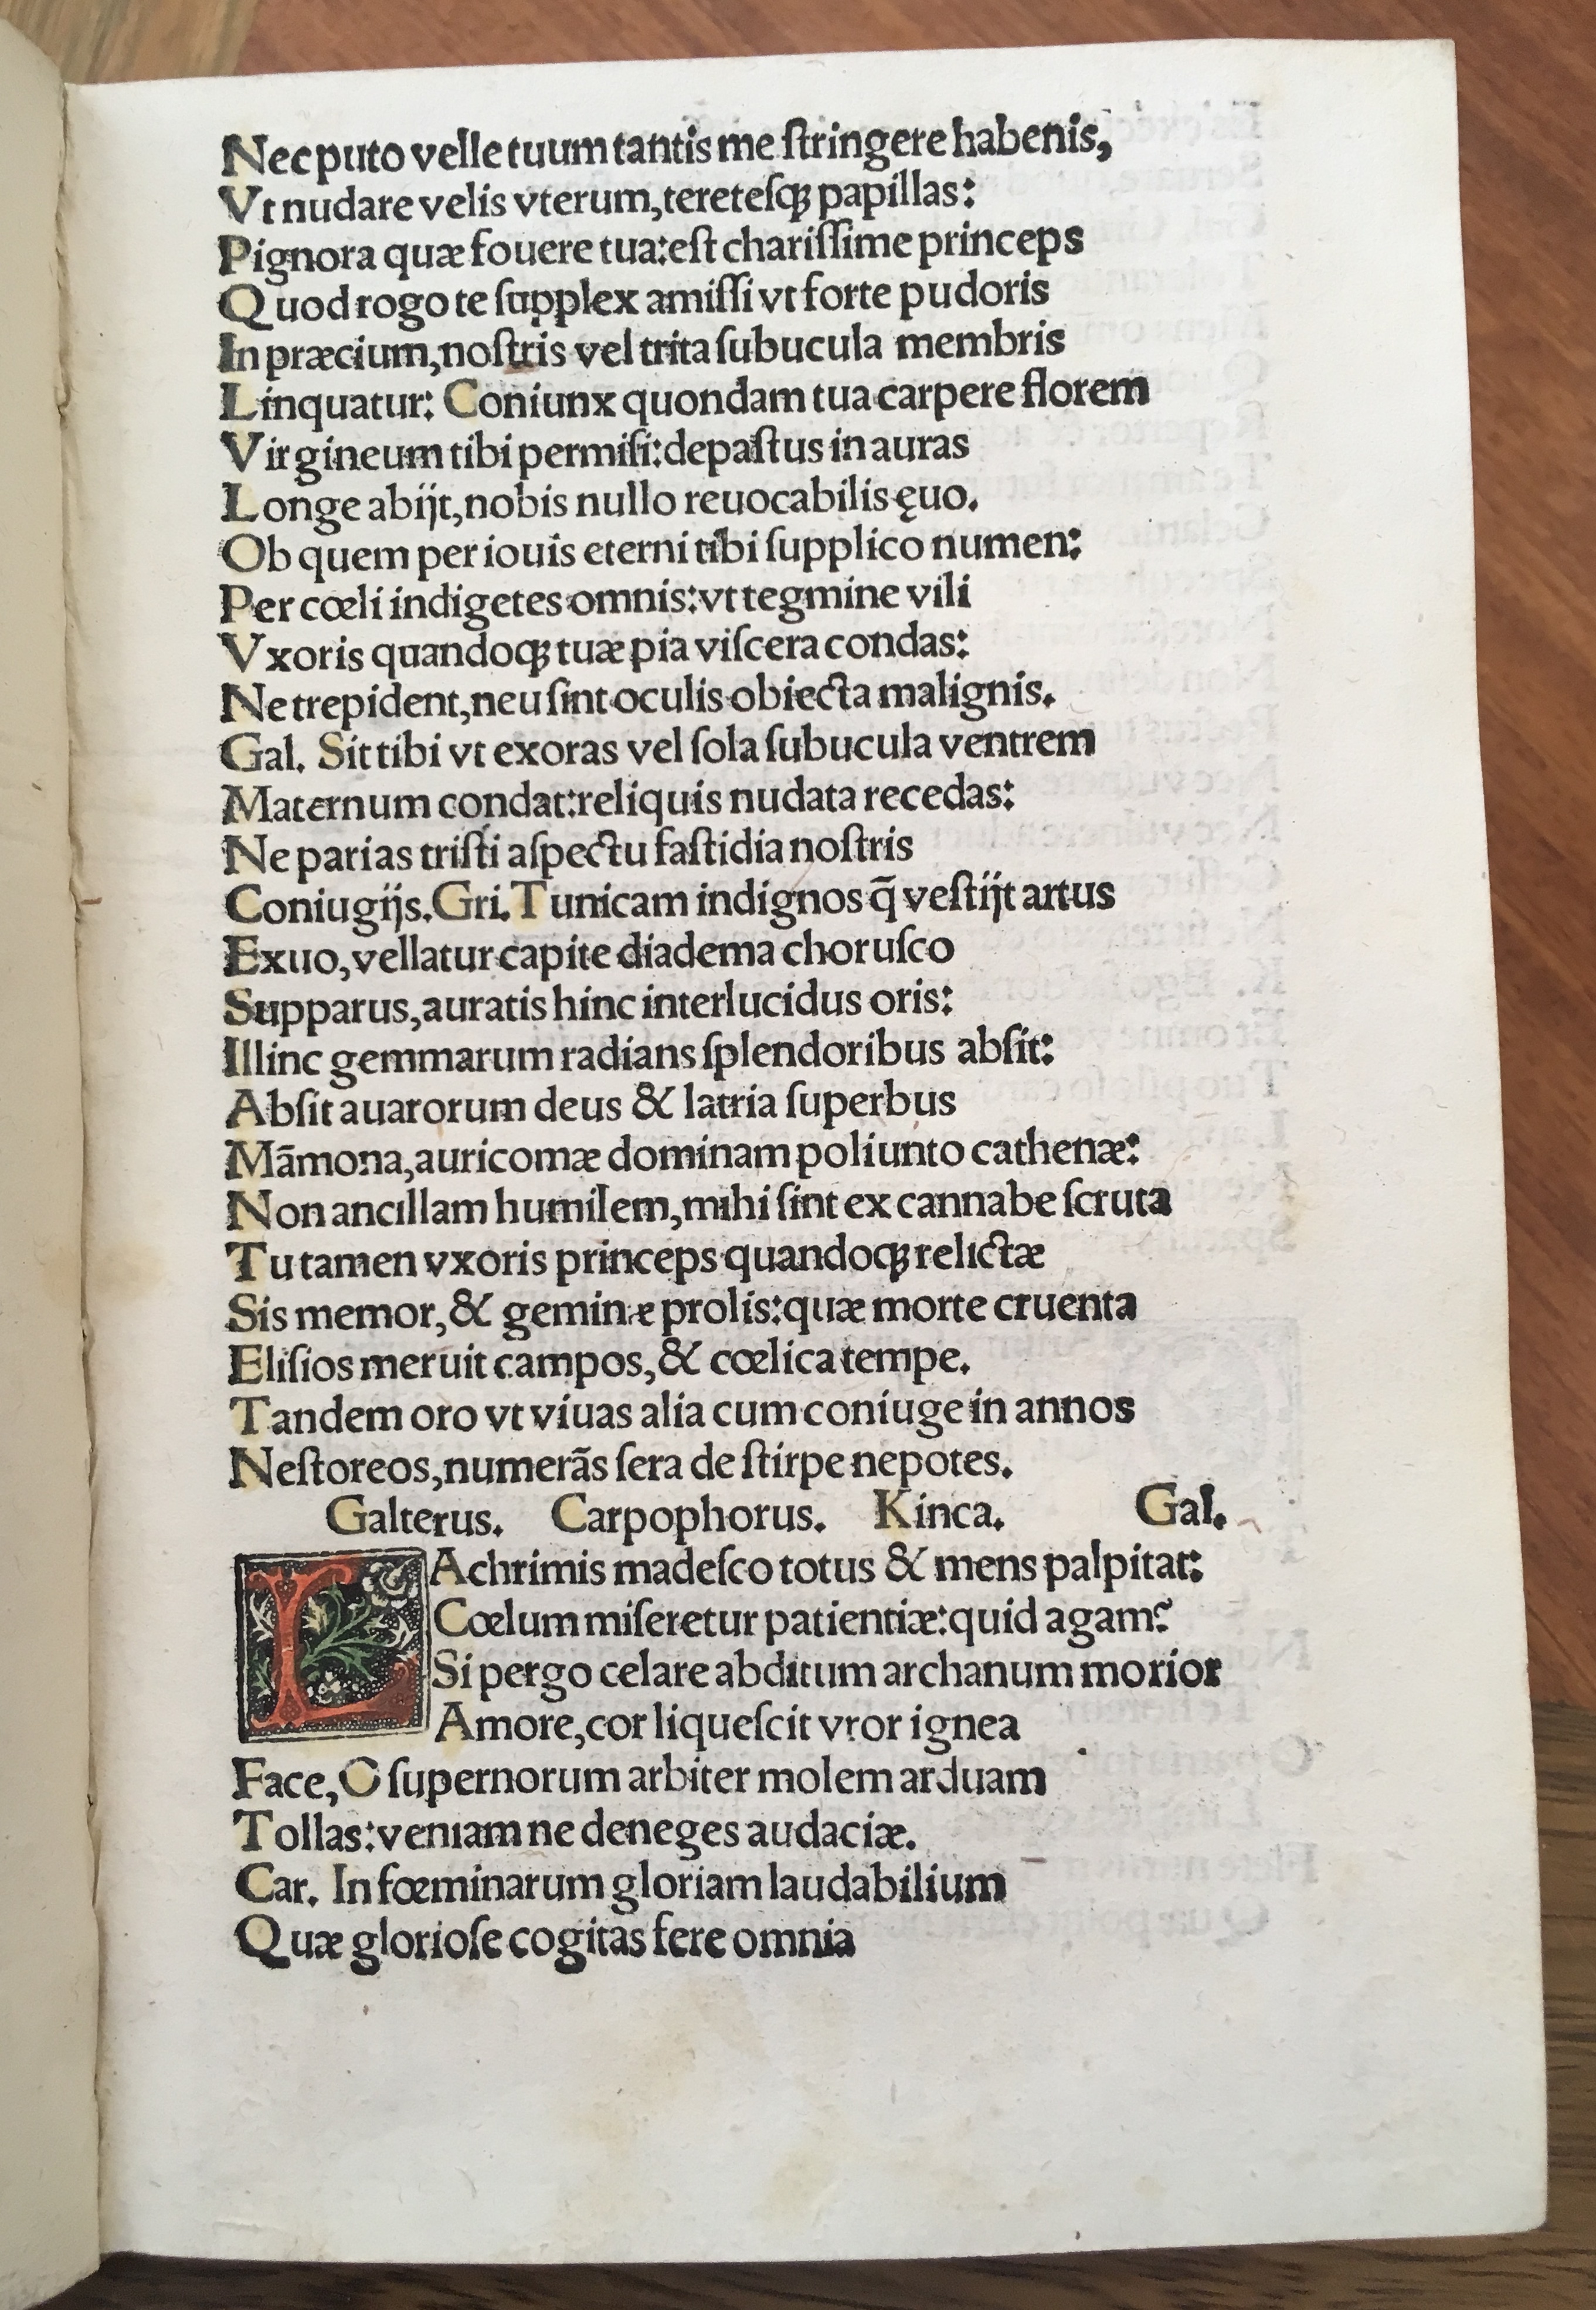 Nec puto velle tuum tantis me ſtringere habenis,
Vt nudare velis vterum,tereteſqꝫ papillas:
Pignora quæ fouere tua:eſt chariſſime princeps
Quod rogo te ſupplex amiſſi vt forte pudoris
In præcium,noſtris vel trita ſubucula membris
Linquatur: Coniunx quondam tua carpere florem
Virgineum tibi permiſi:depaſtus in auras
Longe abijt,nobis nullo reuocabilis ęuo.
Ob quem per iouis eterni tibi ſupplico numen:
Per cœli indigetes omnis:vt tegmine vili
Vxoris quandoqꝫ tuæ pia viſcera condas:
Ne trepident,neu ſint oculis obiecta malignis.
Gal. Sit tibi vt exoras vel ſola ſubucula ventrem
Maternum condat:reliquis nudata recedas:
Ne parias triſti aſpectu faſtidia noſtris
Coniugijs. Gri. Tunicam indignos q̃ veſtijt artus
Exuo,vellatur capite diadema choruſco
Supparus,auratis hinc interlucidus oris:
Illinc gemmarum radians ſplendoribus abſit:
Abſit auarorum deus & latria ſuperbus
Mãmona,auricomæ dominam poliunto cathenæ:
Non ancillam humilem,mihi ſint ex cannabe ſcruta
Tu tamen vxoris princeps quandoqꝫ relictæ
Sis memor,& geminæ prolis:quæ morte cruenta
Eliſios meruit campos,& cœlica tempe.
Tandem oro vt viuas alia cum coniuge in annos
Neſtoreos,numerãs ſera de ſtirpe nepotes.
Galterus. Carpophorus. Kinca. Gal.
LAchrimis madeſco totus & mens palpitat:
Cœlum miſeretur patientiæ:quid agam?
Si pergo celare abditum archanum morior
Amore,cor liqueſcit vror ignea
Face,O ſupernorum arbiter molem arduam
Tollas:veniam ne deneges audaciæ.
Car. In fœminarum gloriam laudabilium
Quæ glorioſe cogitas fere omnia